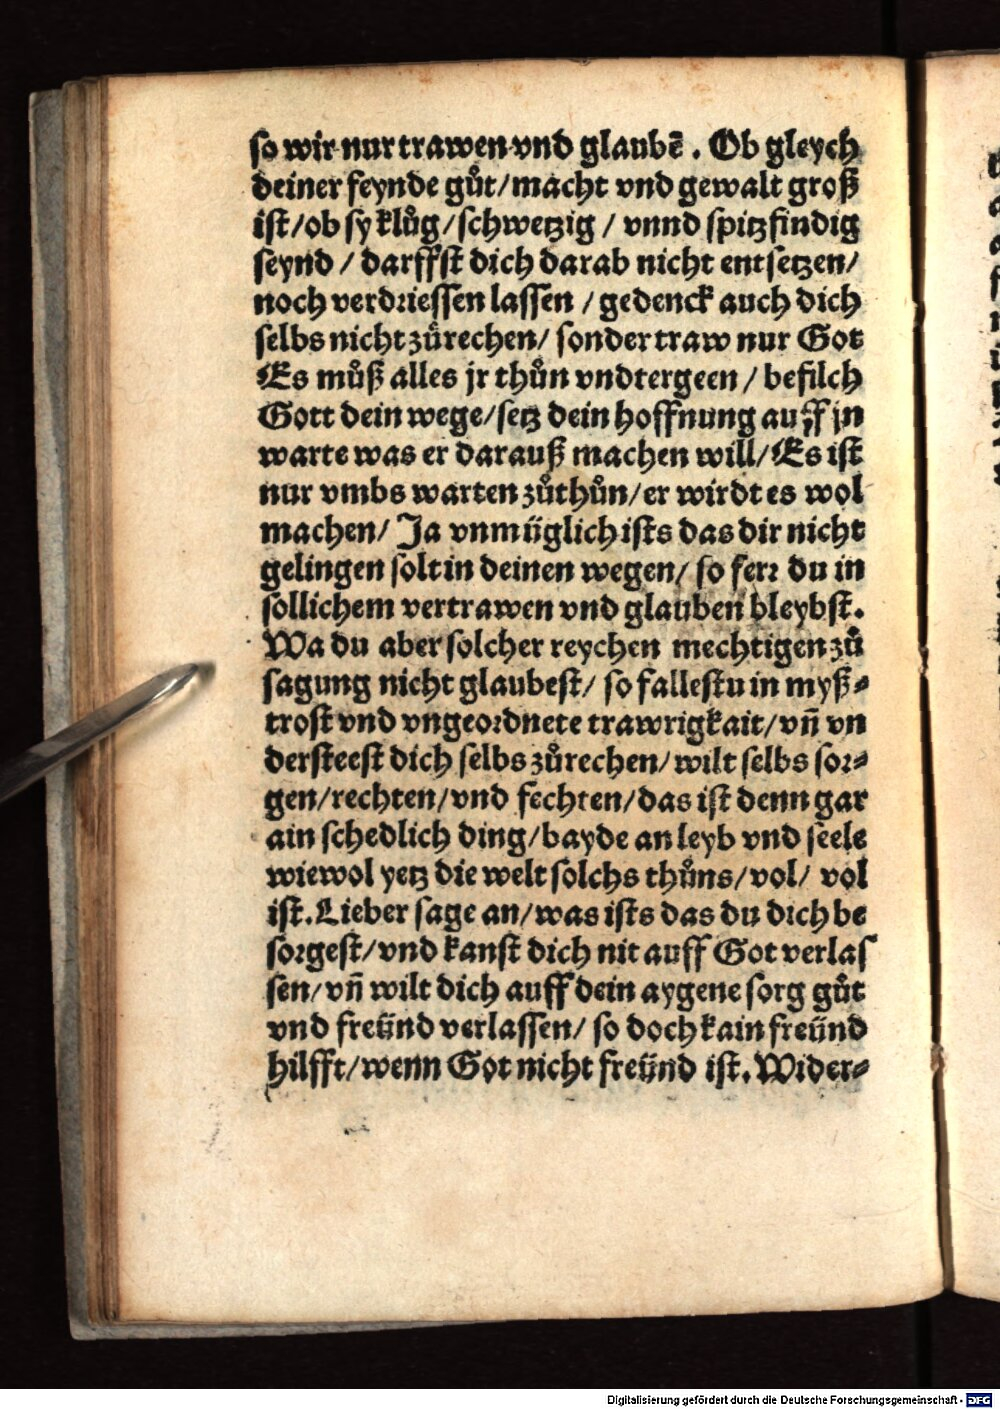 so wir nur trawen vnd glaubẽ. Ob gleych
deiner feynde gůt/macht vnd gewalt groß
ist/ob sy klůg/schwetzig / vnnd spitzfindig
seynd / darffst dich darab nicht entsetzen/
noch verdriessen lassen /gedenck auch dich
selbs nicht zůrechen/ sonder traw nur Got
Es můß alles jr thůn vndtergeen / befilch
Gott dein wege/setz dein hoffnung auff jn
warte was er darauß machen will/Es ist
nur vmbs warten zůthůn/er wirdt es wol
machen/ Ja vnmüglich ists das dir nicht
gelingen solt in deinen wegen/ so ferr du in
sollichem vertrawen vnd glauben bleybst.
Wa du aber solcher reychen mechtigen zů
sagung nicht glaubest/ so fallestu in myß⸗
trost vnd vngeordnete trawrigkait/vñ vn
dersteest dich selbs zůrechen/wilt selbs sor⸗
gen/rechten/vnd fechten/das ist denn gar
ain schedlich ding/bayde an leyb vnd seele
wiewol yetz die welt solchs thůns/vol/ vol
ist. Lieber sage an/was ists das du dich be
sorgest/vnd kanst dich nit auff Got verlas
sen/vñ wilt dich auff dein aygene sorg gůt
vnd freünd verlassen/ so doch kain freünd
hilfft/wenn Got nicht freünd ist. Wider⸗
Digitalisierung gefördert durch die Deutsche Forschungsgemeinschaft - DFG